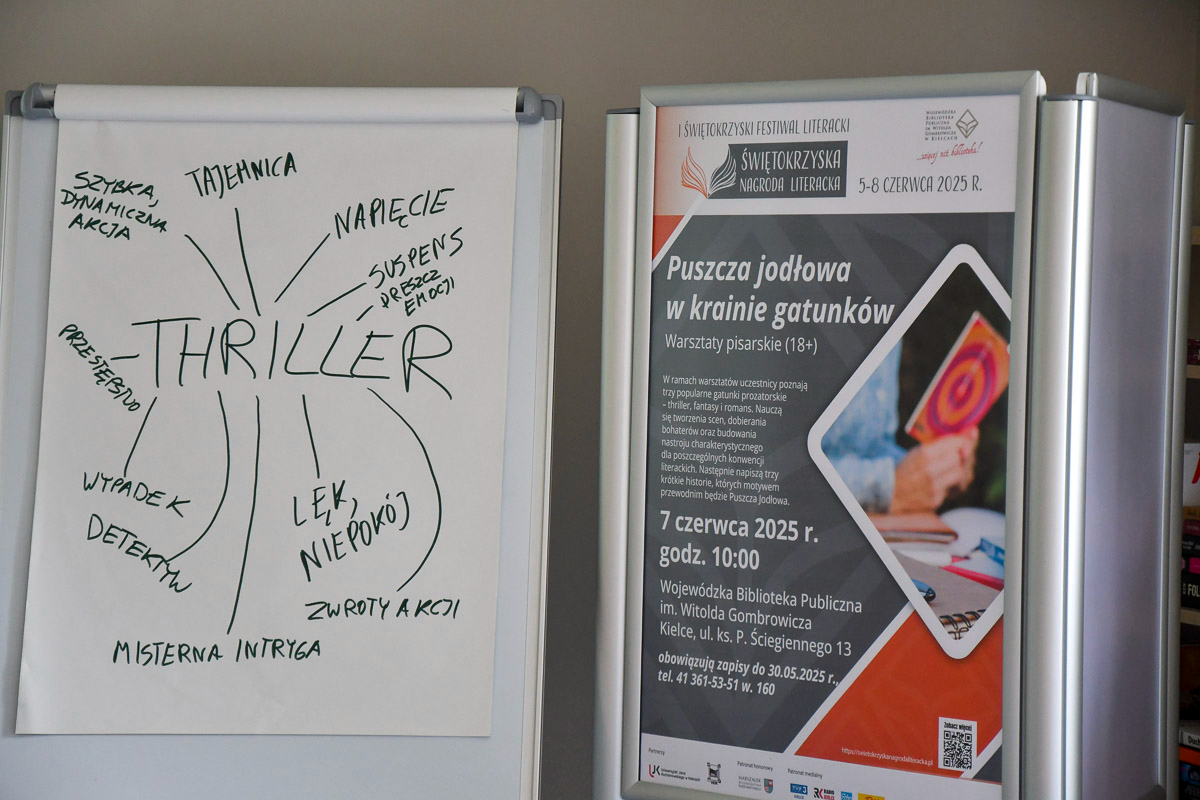 SZYBKA,
DYNAMICZNA
AKCJA
TAJEMNICA
NAPIĘCIE
SUSPENS
DRESZCZ
EMOCJI
THRILLER
PRZESTĘPSTWO
WYPADEK
DETEKTYW
LĘK,
NIEPOKÓJ
ZWROTY AKCJI
MISTERNA INTRYGA
I ŚWIĘTOKRZYSKI FESTIWAL LITERACKI
ŚWIĘTOKRZYSKA
NAGRODA LITERACKA
WOJEWÓDZKA
BIBLIOTEKA
PUBLICZNA
IM. WITOLDA
GOMBROWICZA
W KIELCACH
...więcej niż biblioteka!
5-8 CZERWCA 2025 R.
Puszcza jodłowa
w krainie gatunków
Warsztaty pisarskie (18+)
W ramach warsztatów uczestnicy poznają
trzy popularne gatunki prozatorskie
– thriller, fantasy i romans. Nauczą
się tworzenia scen, dobierania
bohaterów oraz budowania
nastroju charakterystycznego
dla poszczególnych konwencji
literackich. Następnie napiszą trzy
krótkie historie, których motywem
przewodnim będzie Puszcza Jodłowa.
7 czerwca 2025 r.
godz. 10:00
Wojewódzka Biblioteka Publiczna
im. Witolda Gombrowicza
Kielce, ul. ks. P. Ściegiennego 13
obowiązują zapisy do 30.05.2025 r.,
tel. 41 361-53-51 w. 160
Zobacz więcej
https://swietokrzyskanagrodaliteracka.pl
Partnerzy
Patronat honorowy
Patronat medialny
UJK
Uniwersytet Jana
Kochanowskiego w Kielcach
MARSZAŁEK
TVP3
KIELCE
RADIO
KIELCE